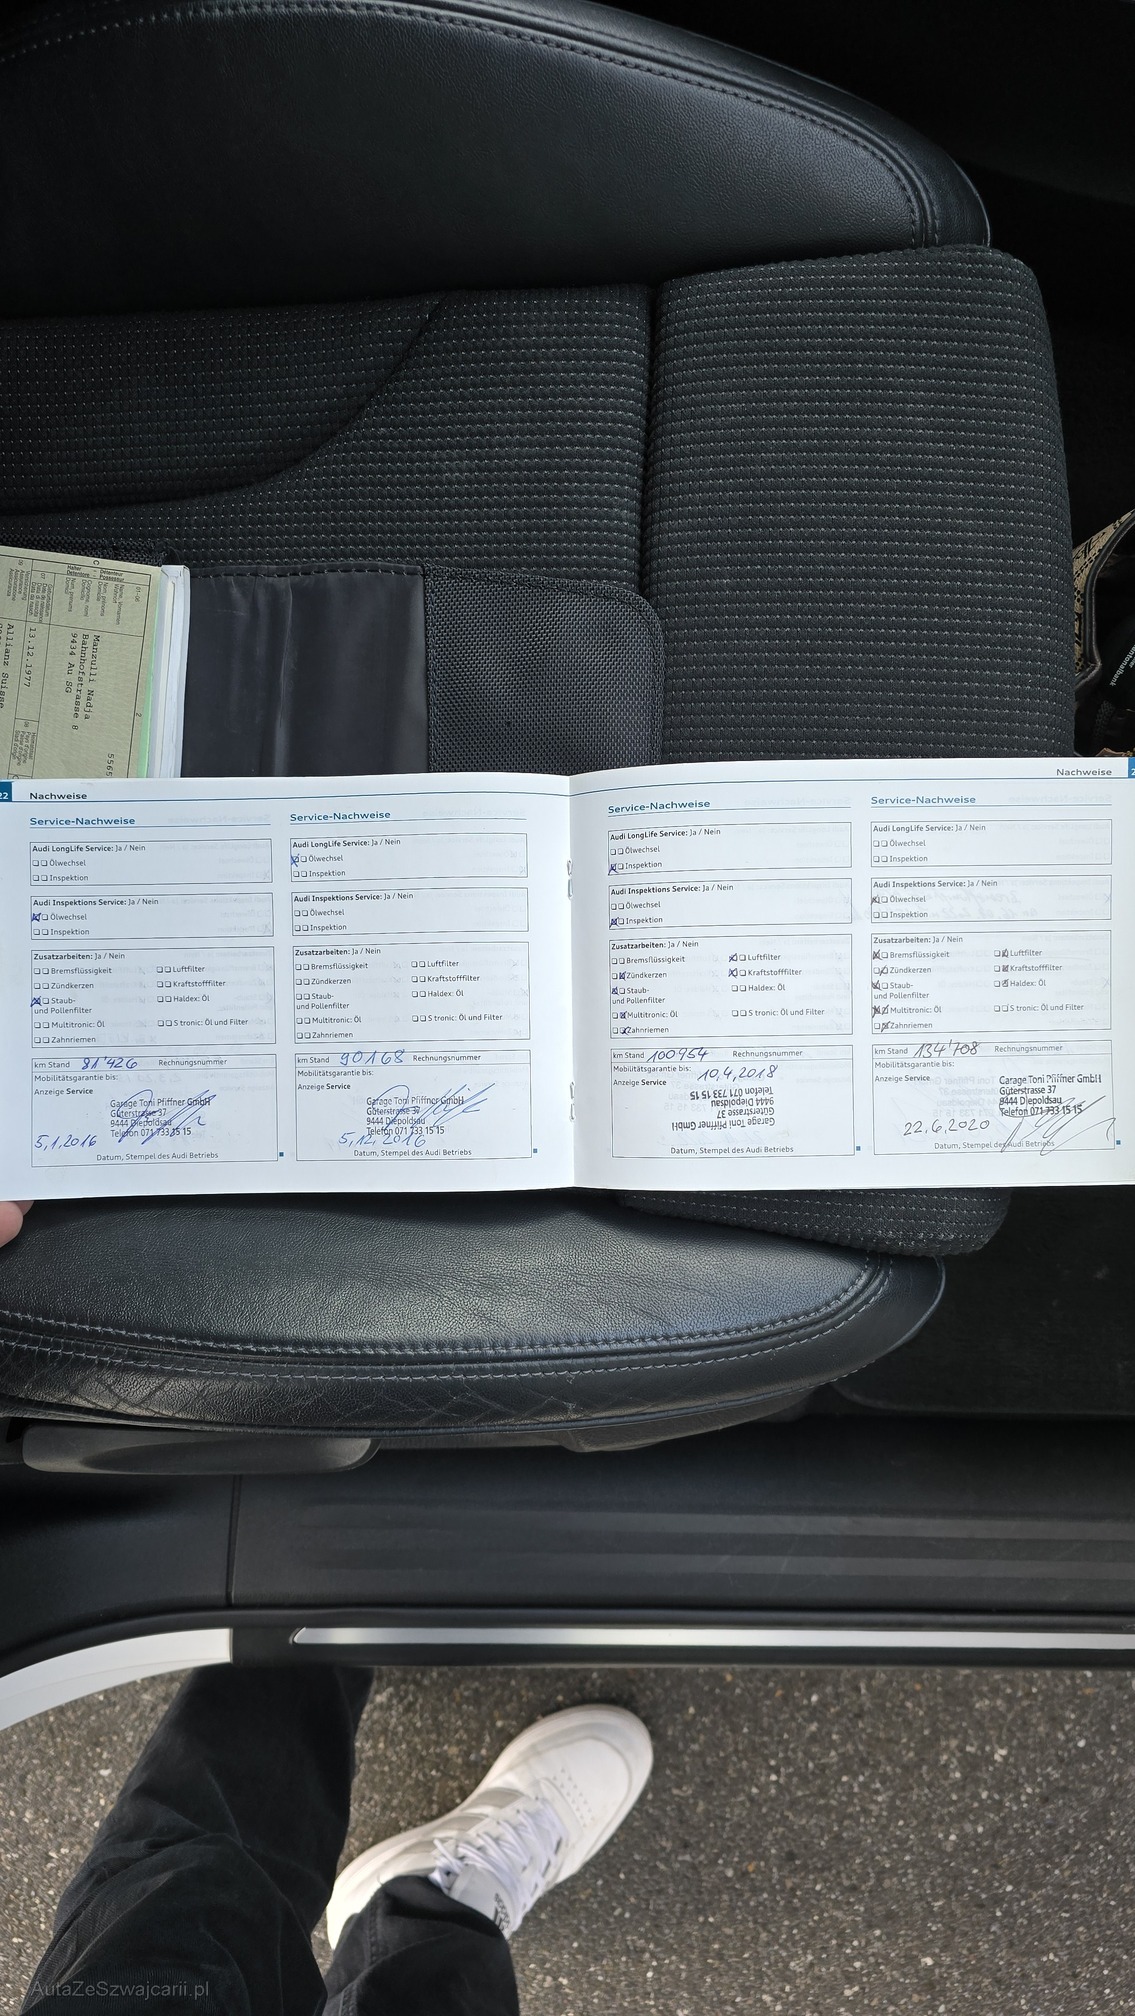 C
Halter
Detentore
Détenteur
Possessur
Name, Vornamen
01-06
Manzulli Nadja
Bahnhofstrasse 8
9434 Au SG
13.12.1977
Allianz Suisse
2
5565
22
Nachweise
Service-Nachweise
Audi LongLife Service: Ja / Nein
Ölwechsel
Inspektion
Audi Inspektions Service: Ja / Nein
Ölwechsel
Inspektion
Zusatzarbeiten: Ja / Nein
Bremsflüssigkeit
Luftfilter
Zündkerzen
Kraftstofffilter
Staub-
und Pollenfilter
Haldex: Öl
Multitronic: Öl
S tronic: Öl und Filter
Zahnriemen
km Stand 81'426 Rechnungsnummer
Mobilitätsgarantie bis:
Anzeige Service
Garage Toni Pfiffner GmbH
Güterstrasse 37
9444 Diepoldsau
Telefon 071 733 15 15
5,1,2016
Datum, Stempel des Audi Betriebs
Service-Nachweise
Audi LongLife Service: Ja / Nein
Ölwechsel
Inspektion
Audi Inspektions Service: Ja / Nein
Ölwechsel
Inspektion
Zusatzarbeiten: Ja / Nein
Bremsflüssigkeit
Luftfilter
Zündkerzen
Kraftstofffilter
Staub-
und Pollenfilter
Haldex: Öl
Multitronic: Öl
S tronic: Öl und Filter
Zahnriemen
km Stand 90168 Rechnungsnummer
Mobilitätsgarantie bis:
Anzeige Service
Garage Toni Pfiffner GmbH
Güterstrasse 37
9444 Diepoldsau
Telefon 071 733 15 15
5,12,2016
Datum, Stempel des Audi Betriebs
Nachweise
2
Service-Nachweise
Audi LongLife Service: Ja / Nein
Ölwechsel
Inspektion
Audi Inspektions Service: Ja / Nein
Ölwechsel
Inspektion
Zusatzarbeiten: Ja / Nein
Bremsflüssigkeit
Luftfilter
Zündkerzen
Kraftstofffilter
Staub-
und Pollenfilter
Haldex: Öl
Multitronic: Öl
S tronic: Öl und Filter
Zahnriemen
km Stand 100954 Rechnungsnummer
Mobilitätsgarantie bis:
10,4,2018
Anzeige Service
Garage Toni Pfiffner GmbH
Güterstrasse 37
9444 Diepoldsau
Telefon 071 733 15 15
Datum, Stempel des Audi Betriebs
Service-Nachweise
Audi LongLife Service: Ja / Nein
Ölwechsel
Inspektion
Audi Inspektions Service: Ja / Nein
Ölwechsel
Inspektion
Zusatzarbeiten: Ja / Nein
Bremsflüssigkeit
Luftfilter
Zündkerzen
Kraftstofffilter
Staub-
und Pollenfilter
Haldex: Öl
Multitronic: Öl
S tronic: Öl und Filter
Zahnriemen
km Stand 134'708 Rechnungsnummer
Mobilitätsgarantie bis:
Anzeige Service
Garage Toni Pfiffner GmbH
Güterstrasse 37
9444 Diepoldsau
Telefon 071 733 15 15
22.6.2020
Datum, Stempel des Audi Betriebs
AutaZeSzwajcarii.pl